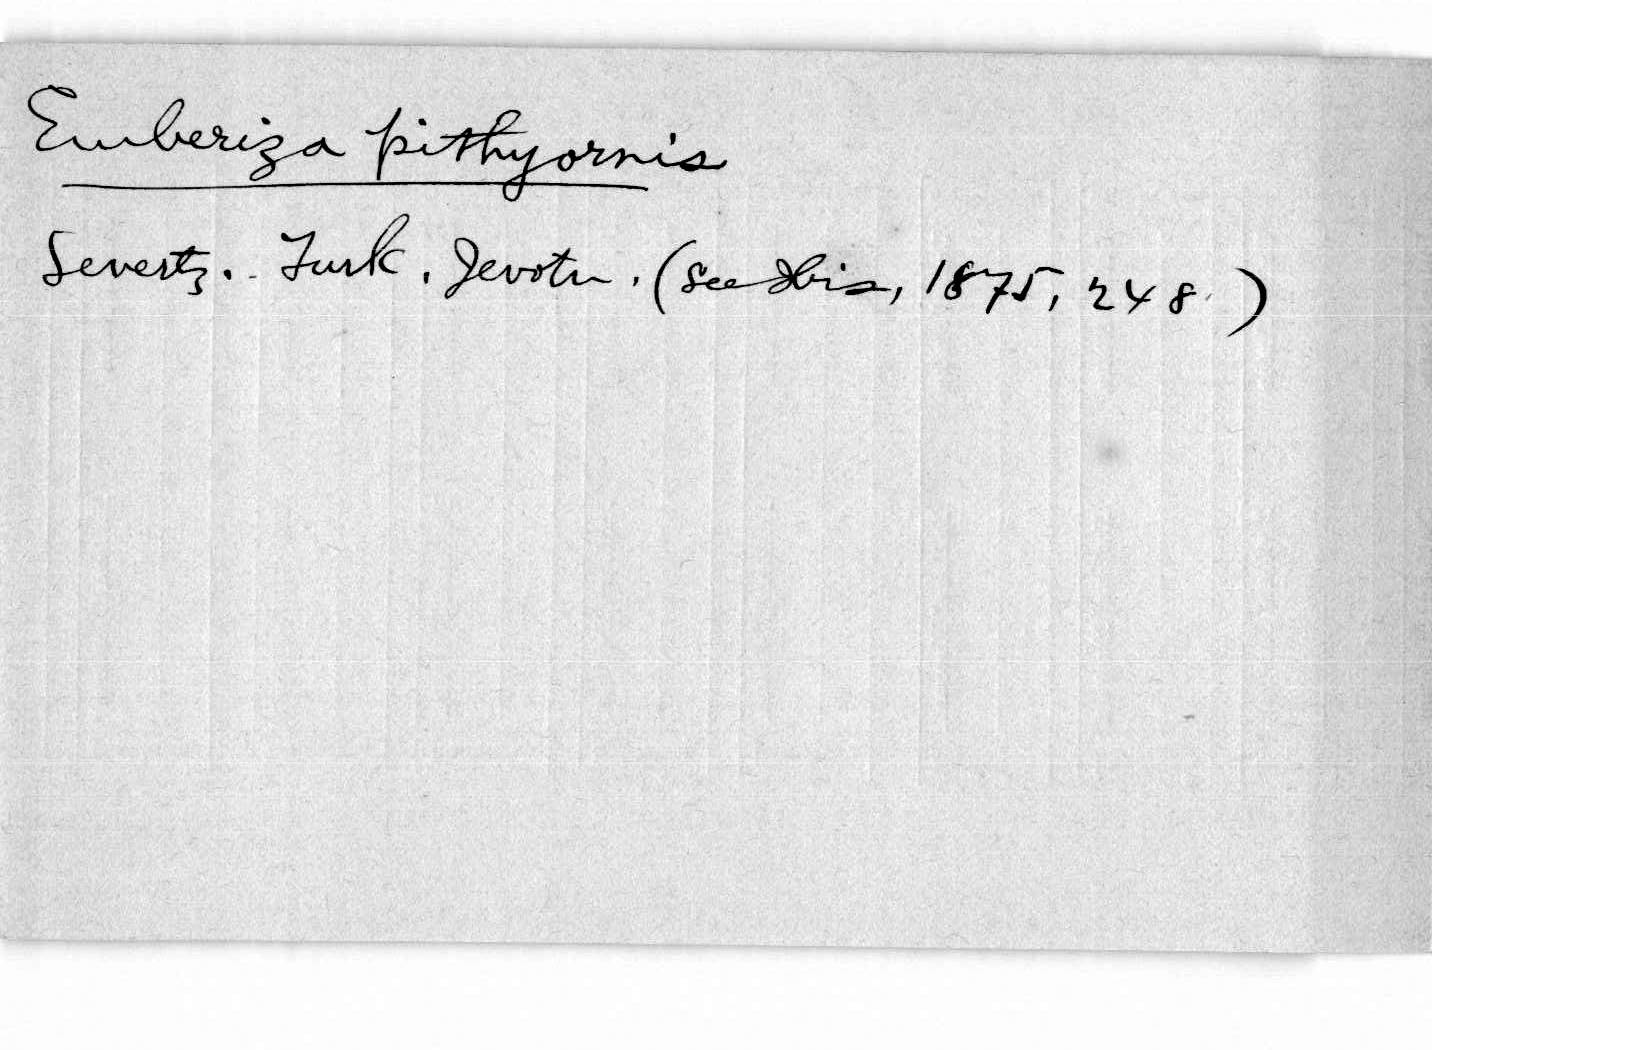 Emberiza pithyornis
Severtz. Turk. Jevotn. (see Ibis, 1875, 248.)